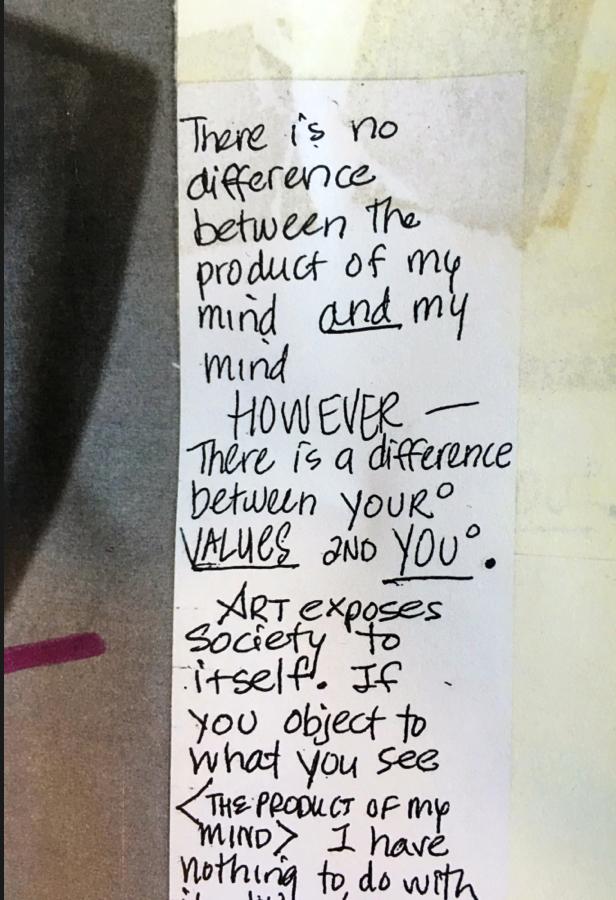 There is no
difference
between the
product of my
mind and my
mind
HOWEVER —
There is a difference
between YOUR°
VALUES AND YOU°.
ART exposes
Society to
itself. If
you object to
what you see
<THE PRODUCT OF my
MIND> I have
nothing to do with